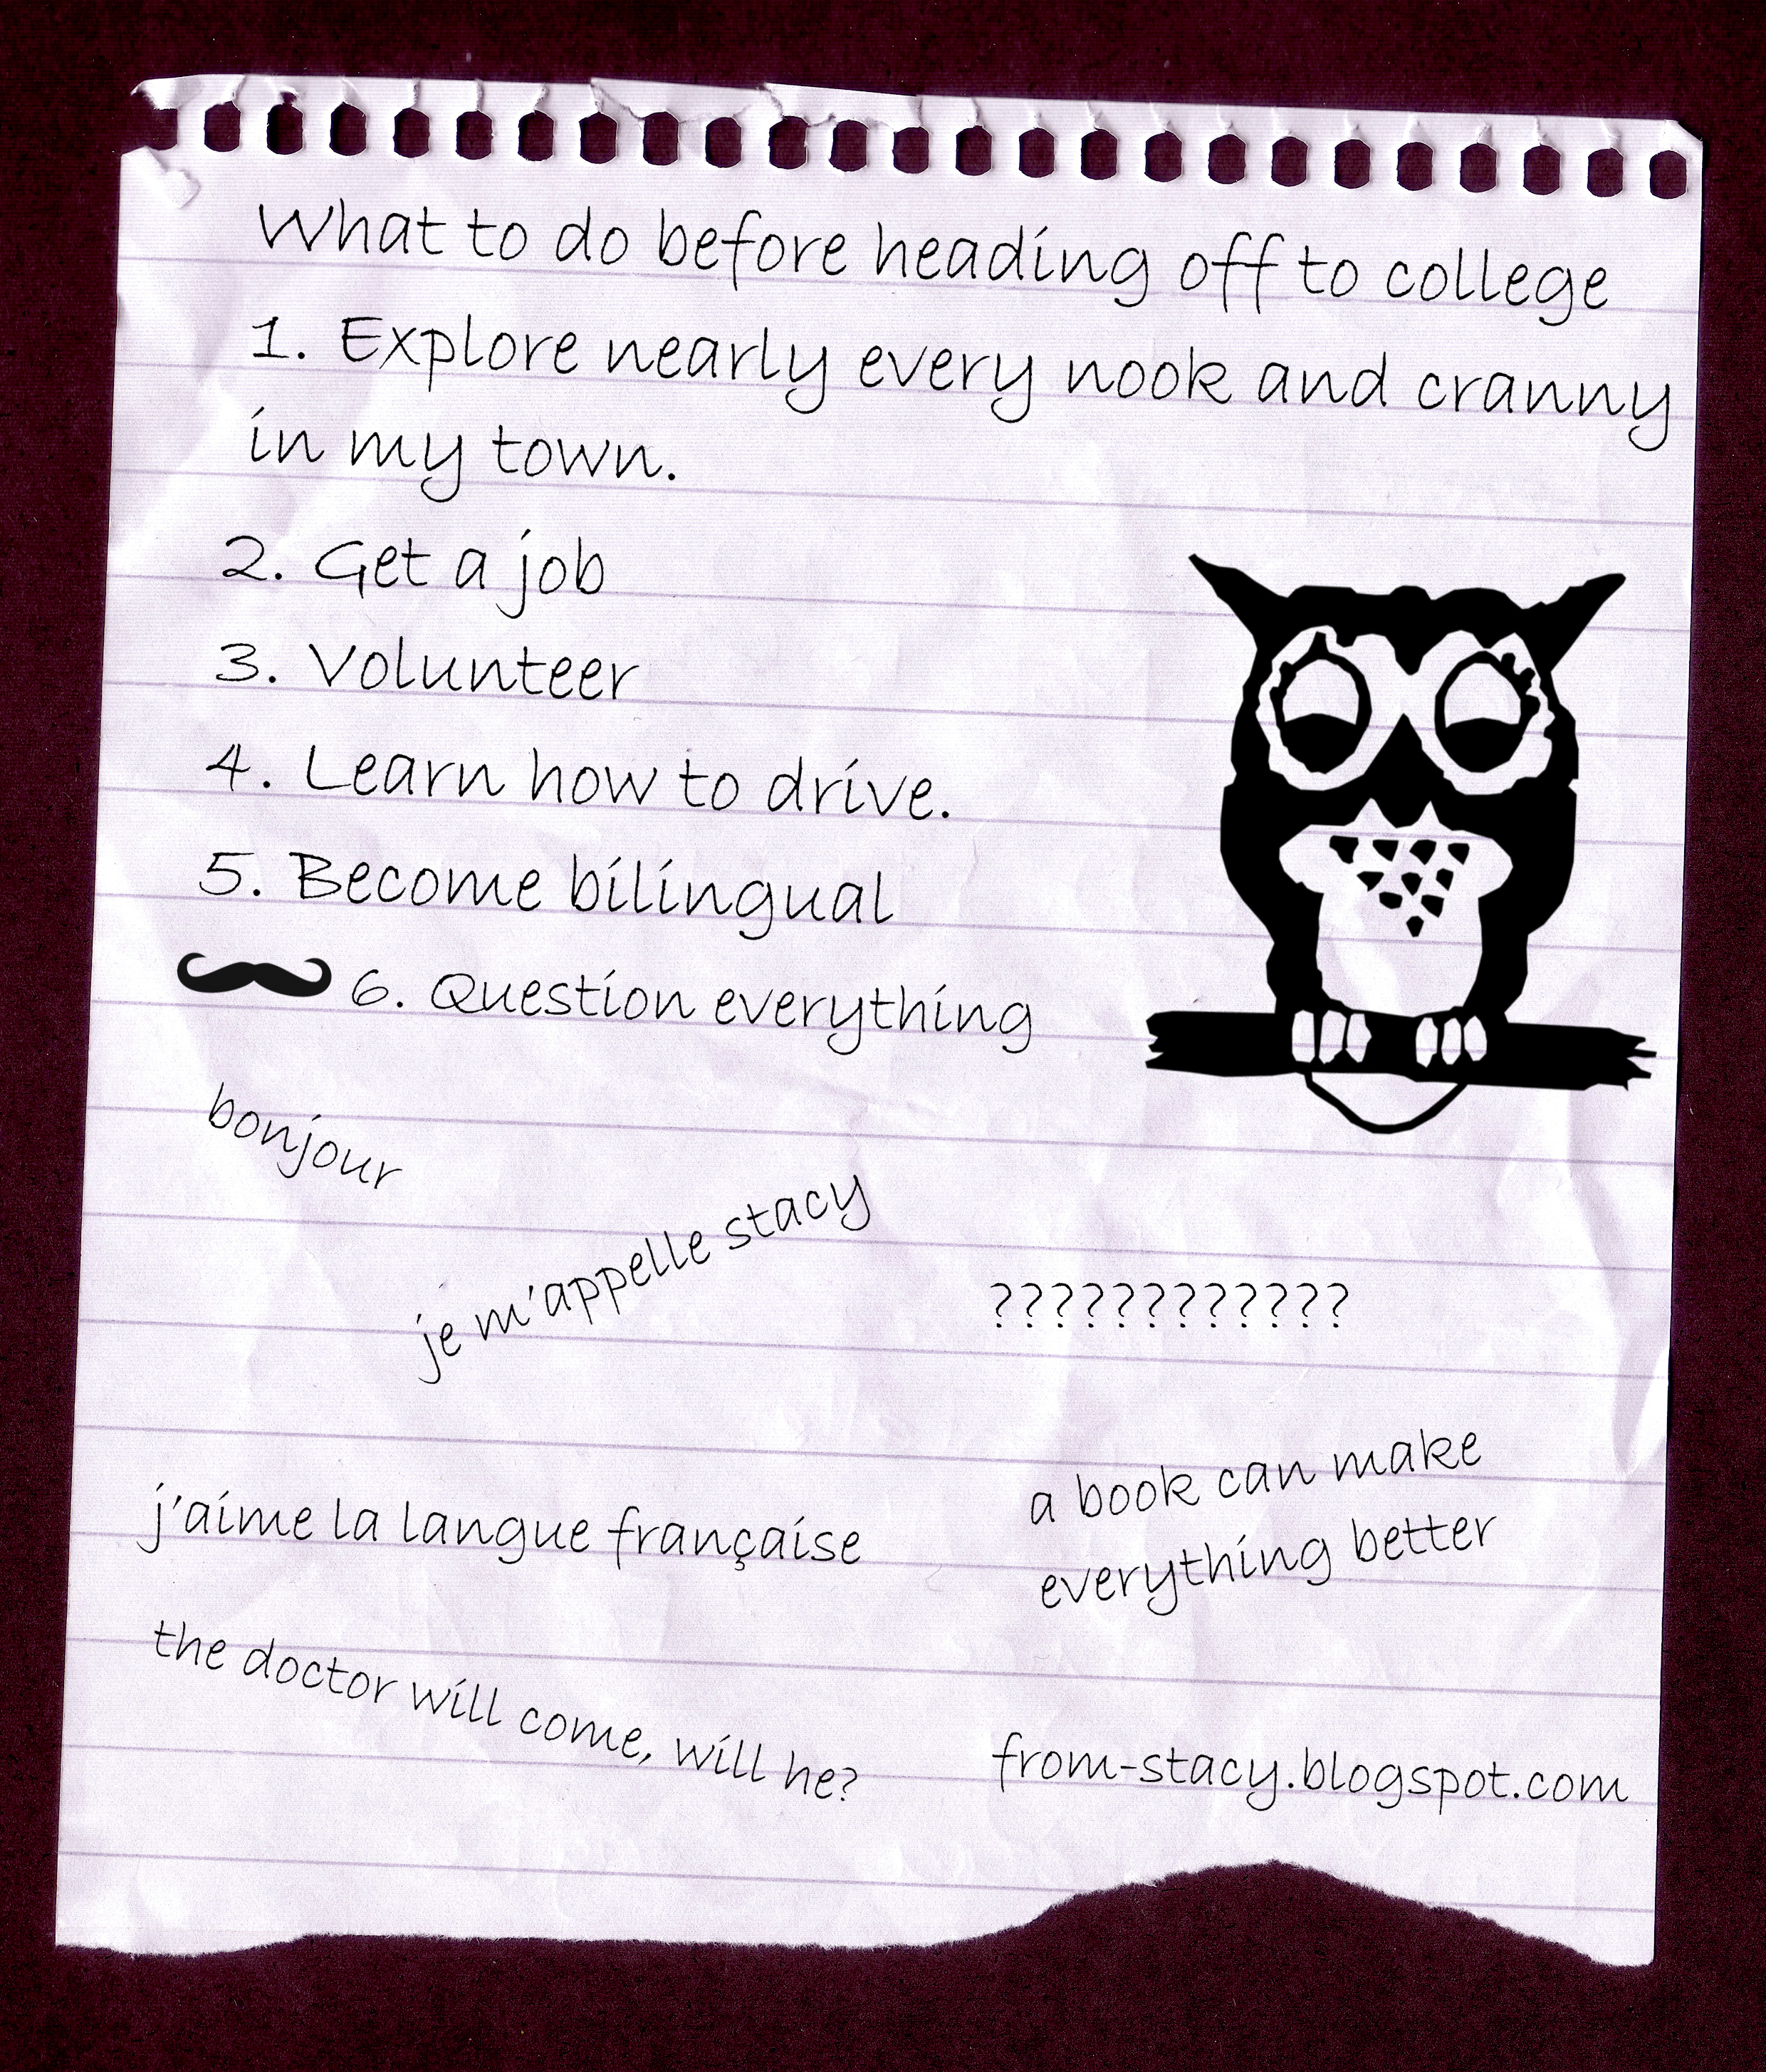 What to do before heading off to college
1. Explore nearly every nook and cranny
in my town.
2. Get a job
3. Volunteer
4. Learn how to drive.
5. Become bilingual
6. Question everything
bonjour
je m'appelle stacy
????????????
j'aime la langue française
a book can make
everything better
the doctor will come, will he?
from-stacy.blogspot.com